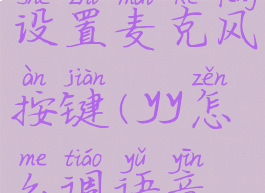 shè zhì mài kè fēng
设置麦克风
àn jiàn zěn
按键(yy怎
me tiáo yǔ yīn
么调语音